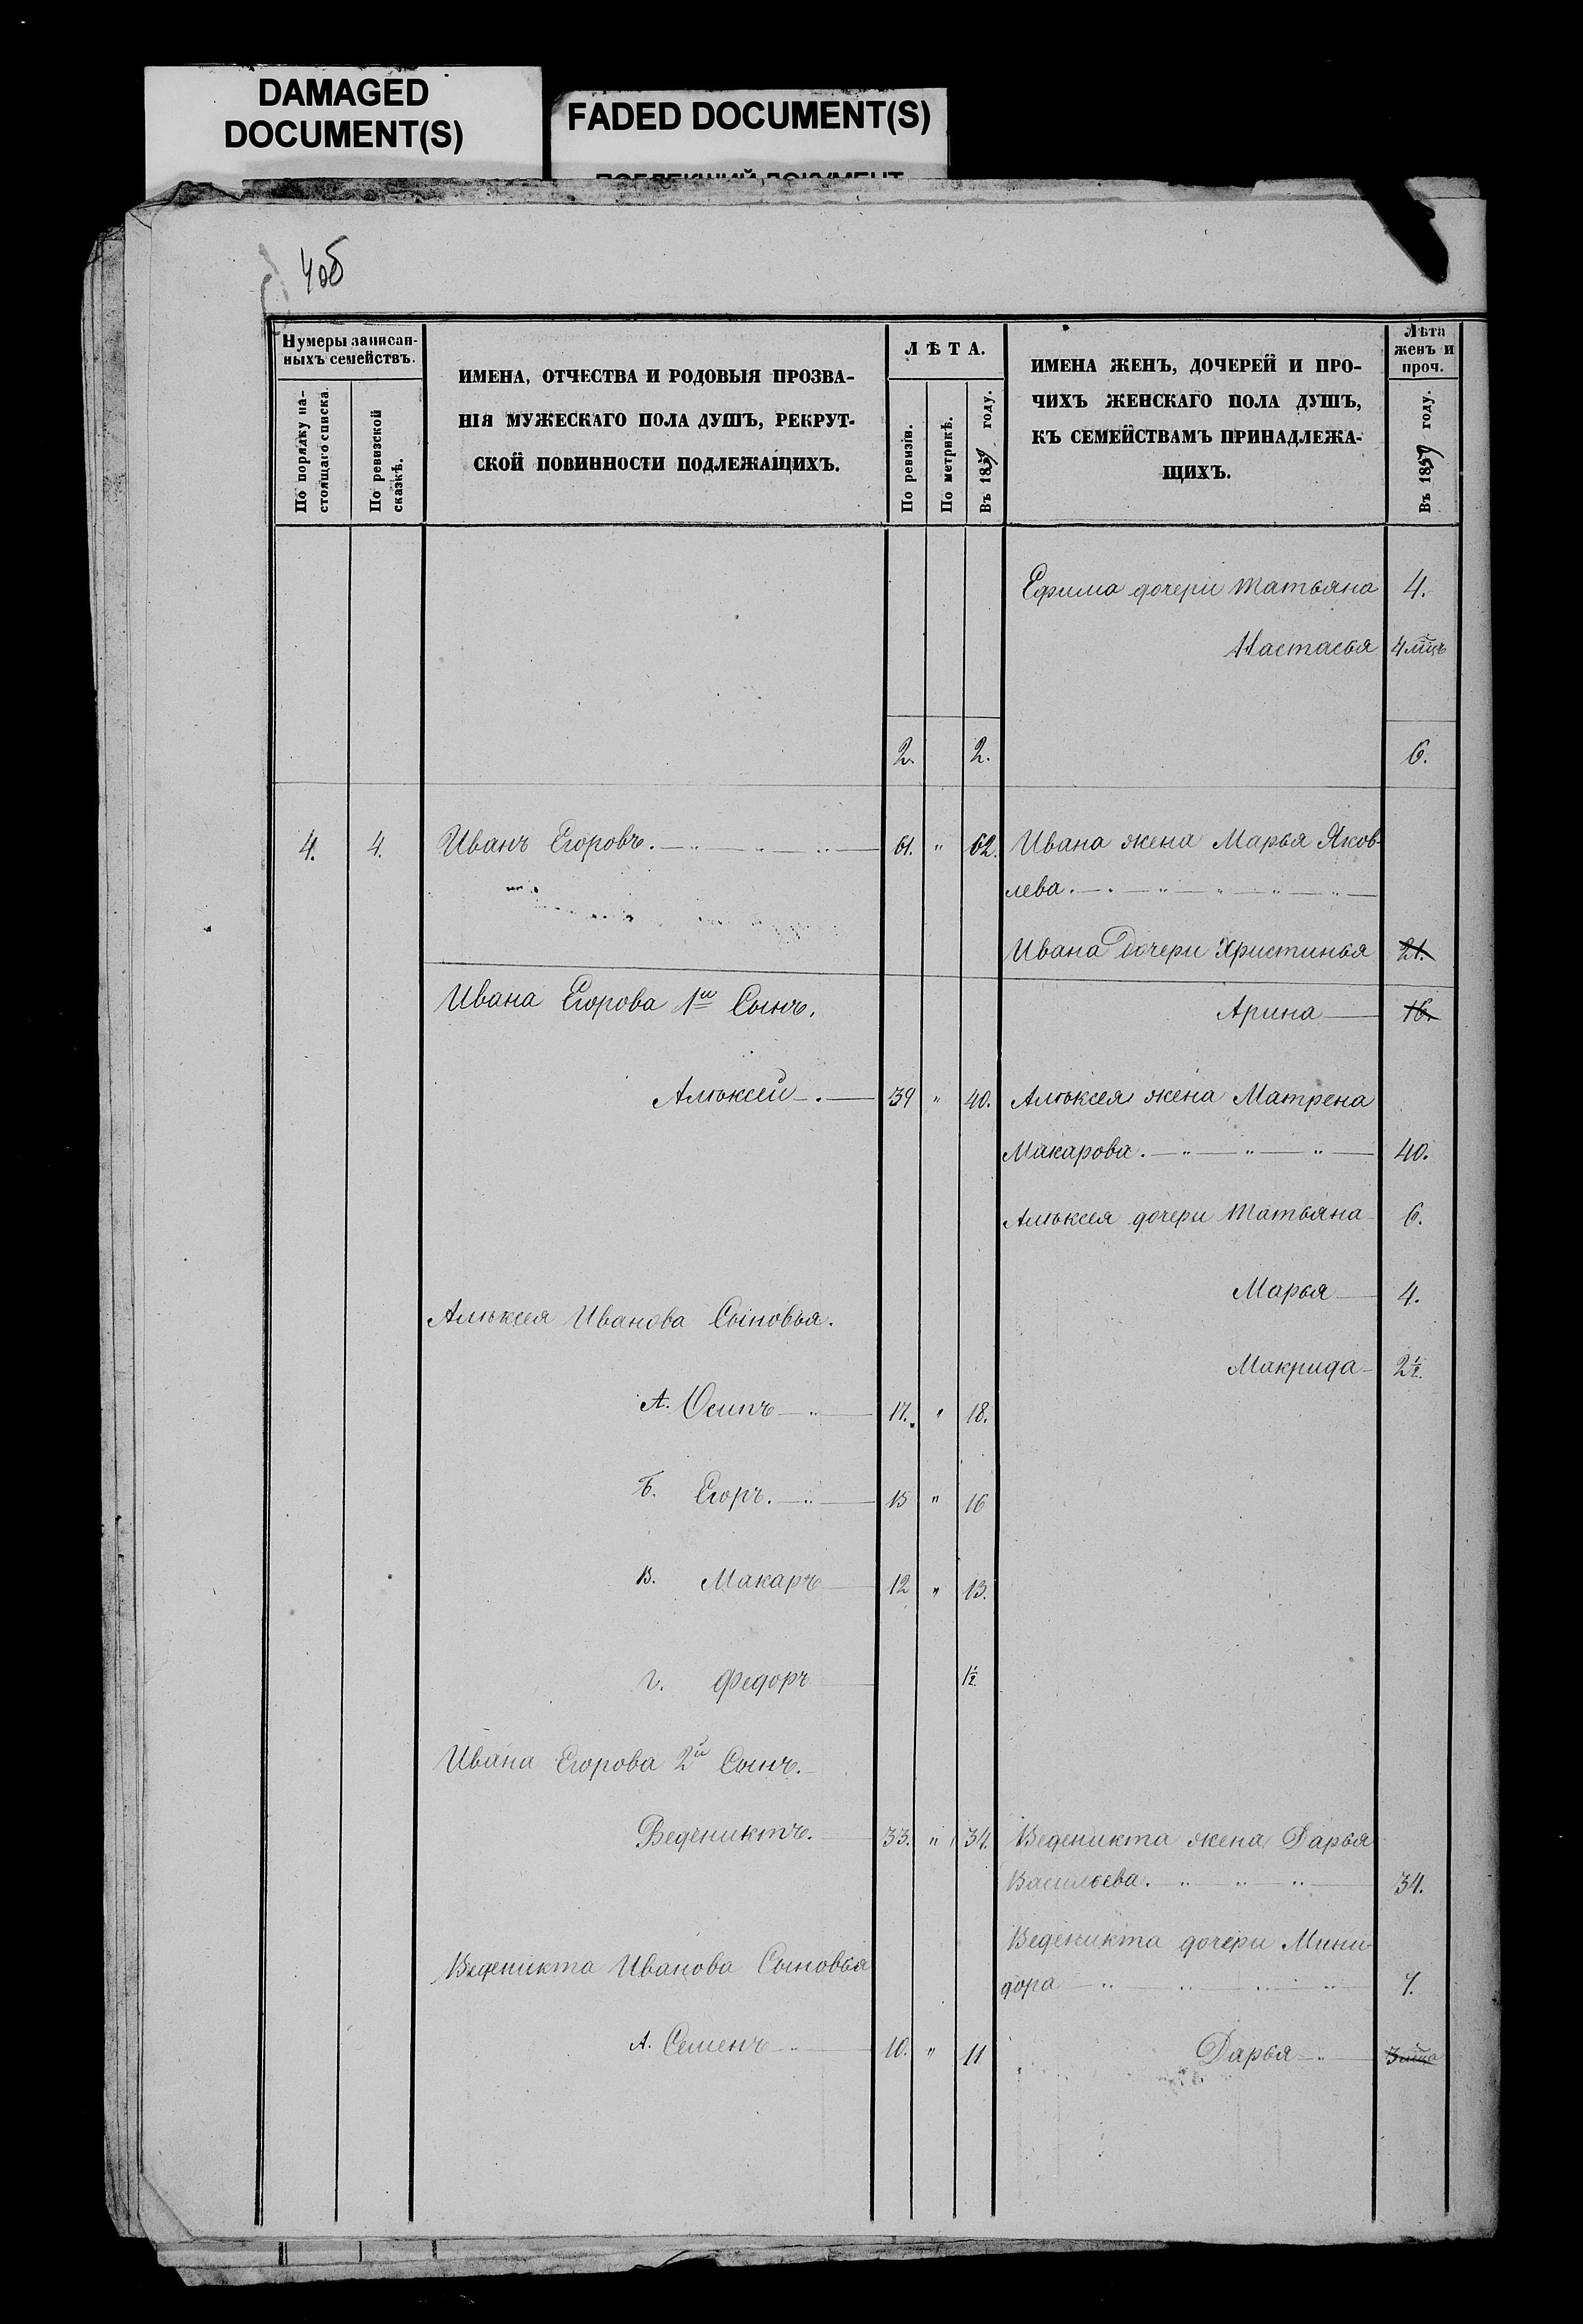 DAMAGED
DOCUMENT(S)
FADED DOCUMENT(S)
4об
Нумеры записан-
ныхъ семействъ.
По порядку на-
стоящаго списка.
По ревизской
сказкѣ.
ИМЕНА, ОТЧЕСТВА И РОДОВЫЯ ПРОЗВА-
НІЯ МУЖЕСКАГО ПОЛА ДУШЪ, РЕКРУТ-
СКОЙ ПОВИННОСТИ ПОДЛЕЖАЩИХЪ.
ЛѢТА.
По ревизіи.
По метрикѣ.
Въ 1859 году.
ИМЕНА ЖЕНЪ, ДОЧЕРЕЙ И ПРО-
ЧИХЪ ЖЕНСКАГО ПОЛА ДУШЪ,
КЪ СЕМЕЙСТВАМЪ ПРИНАДЛЕЖА-
ЩИХЪ.
Лѣта
женъ и
проч.
Въ 1859 году.
Ефима дочери Татьяна 4.
Настасья 4 мцъ
2. 2. 6.
4. 4. Иванъ Егоровъ. 61. " 62. Ивана жена Марья Яков-
лева.
Ивана Дочери Христинья 21.
Ивана Егорова 1й Сынъ.
Арина 16.
Алѣксей 39 " 40. Алѣксея жена Матрена
Макарова. 40.
Алѣксея дочери Татьяна 6.
Марья 4.
Алѣксея Иванова Сыновья.
Макрида 2½.
А. Осипъ 17. " 18.
Б. Егоръ. 15 " 16
В. Макаръ 12 " 13.
Г. Федоръ 1½
Ивана Егорова 2й Сынъ.
Веденикта. 33. " 34. Веденикта жена Дарья
Васильева. 34.
Веденикта дочери Мини
Веденикта Иванова Сыновья
дора 7.
А. Семенъ 10. " 11 Дарья 3 мца